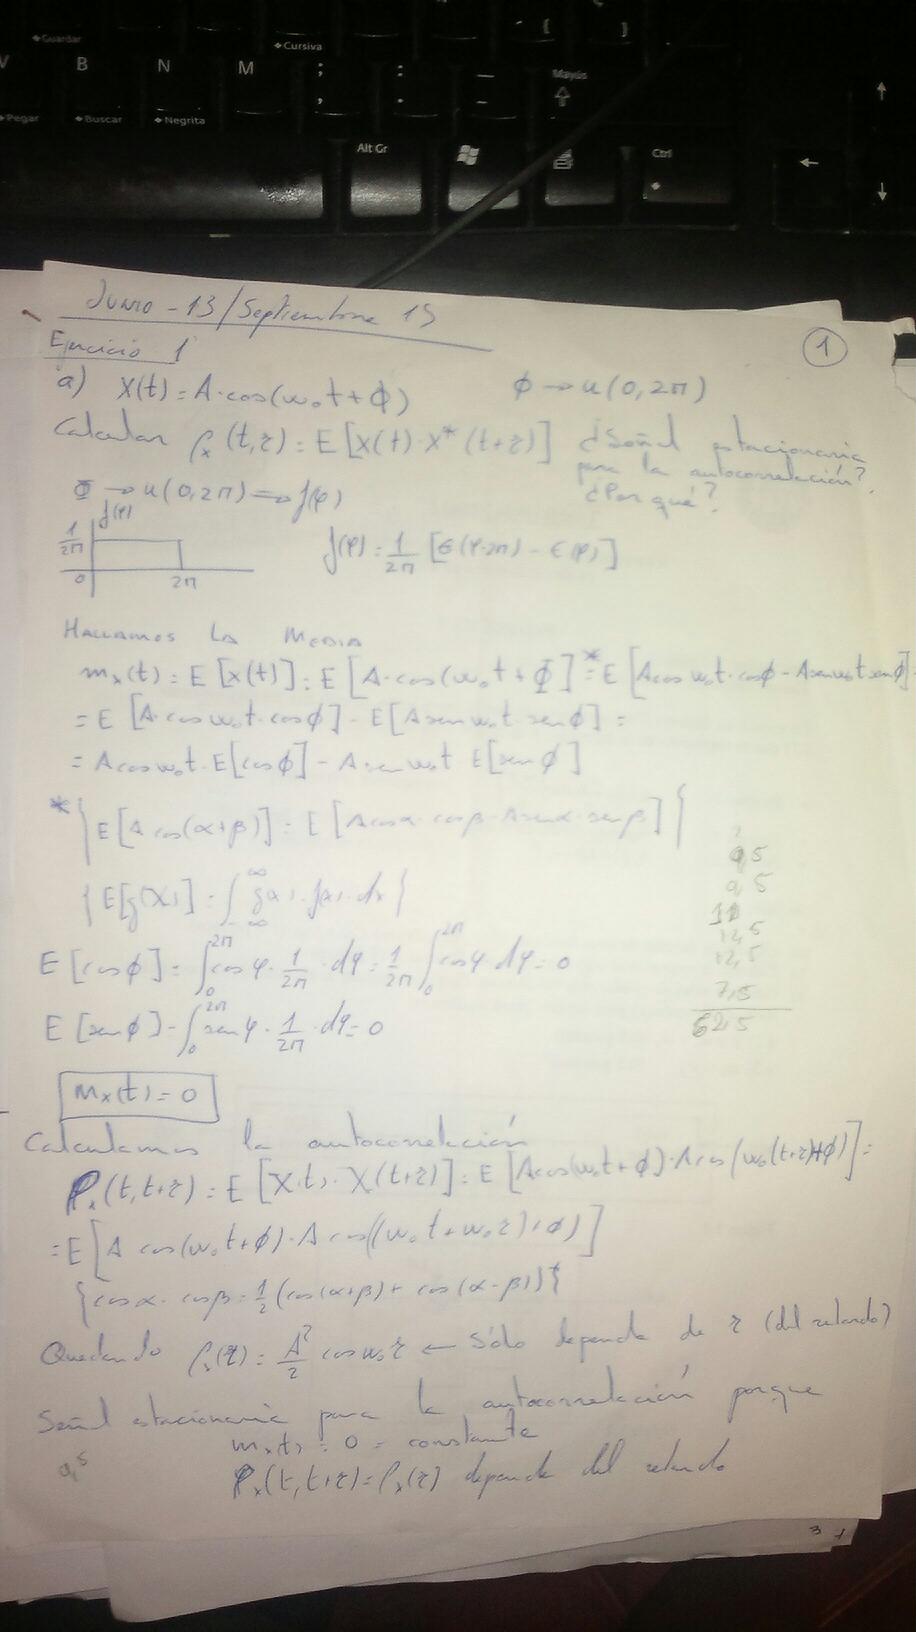 Guardar
Cursiva
V B N M ; : _ Mayús
, . -
Pegar Buscar Negrita
Alt Gr
Ctrl
Junio - 13/Septiembre 15
Ejercicio 1
1
a) X(t) = A·cos(ω₀t + ϕ) ϕ → u(0, 2π)
Calcular ρₓ(t,τ) = E[X(t)·X*(t+τ)] ¿Señal estacionaria
para la autocorrelación?
¿Por qué?
Φ → u(0, 2π) ⟹ f(φ)
f(φ)
1/2π
0 2π
f(φ) = 1/2π [ϵ(φ-2π) - ϵ(φ)]
HALLAMOS LA MEDIA
mₓ(t) = E[x(t)] = E[A·cos(ω₀t + Φ] *= E[Acos ω₀t·cosϕ - Asenω₀t senϕ] =
= E[A·cos ω₀t·cosϕ] - E[A senω₀t·senϕ] =
= Acosω₀t·E[cosϕ] - A senω₀t E[senϕ]
* { E[A cos(α+β)] = E[Acosα·cosβ - Asenα·senβ] }
{ E[g(X)] = ∫_{-∞}^{∞} g(x)·f(x)·dx }
E[cosϕ] = ∫₀^{2π} cosφ·1/2π·dφ = 1/2π ∫₀^{2π} cosφ·dφ = 0
E[senϕ] = ∫₀^{2π} senφ·1/2π·dφ = 0
0,5
12,5
12,5
7,5
62,5
mₓ(t) = 0
Calculamos la autocorrelación
ρₓ(t, t+τ) = E[X(t)·X(t+τ)] = E[Acos(ω₀t+ϕ)·Acos(ω₀(t+τ)+ϕ)] =
= E[A cos(ω₀t+ϕ)·A cos((ω₀t+ω₀τ)+ϕ)]
{cosα·cosβ = 1/2 (cos(α+β) + cos(α-β))}
Quedando ρₓ(τ) = A²/2 cosω₀τ ← Sólo depende de τ (del retardo)
Señal estacionaria para la autocorrelación porque
mₓ(t) = 0 = constante
0,5
ρₓ(t, t+τ) = ρₓ(τ) depende del retardo
3 1